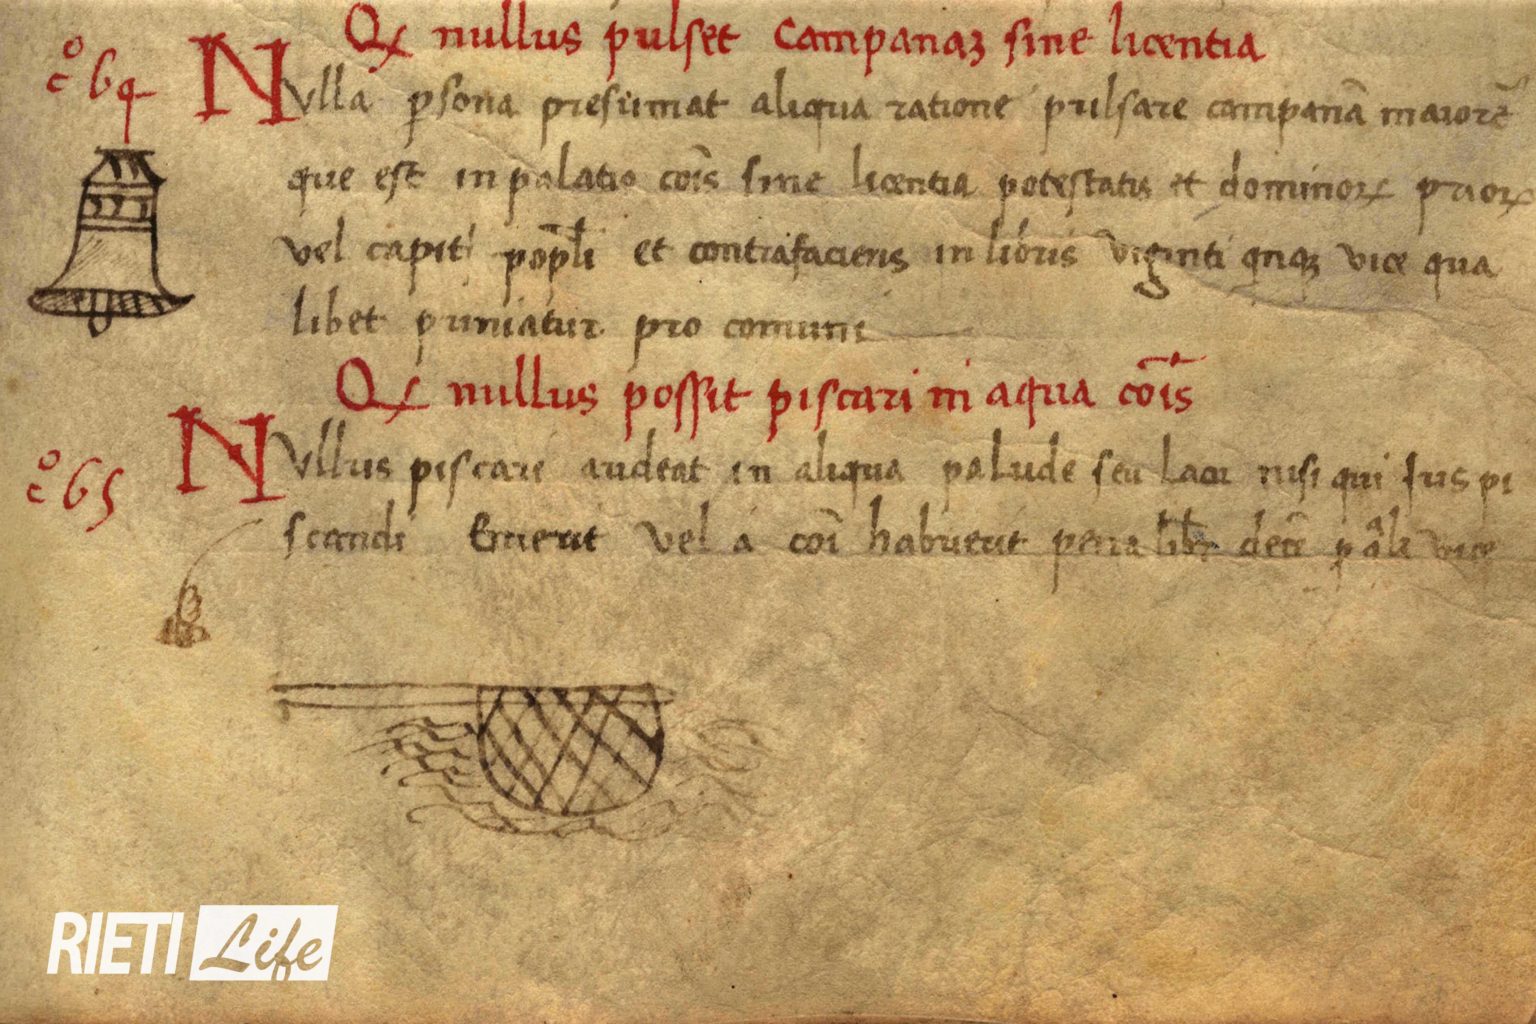 Qꝝ nullus pulset campanaꝫ sine licentia
cͦ 64 Nulla ꝑsona presumat aliqua ratione pulsare campanā maiorē
que est in palatio cōis sine licentia potestatis et dominoꝝ prioꝝ
vel capitī et contrafaciens in libris viginti qnqꝫ vice qua
libet puniatur pro comuni
Qꝝ nullus possit piscari in aqua cōis
cͦ 65 Nullus piscari audeat in aliqua palude seu lacu nisi qui ius pi
scandi Emerit vel a cōi habuerit pena libr decē vice
RIETI Life